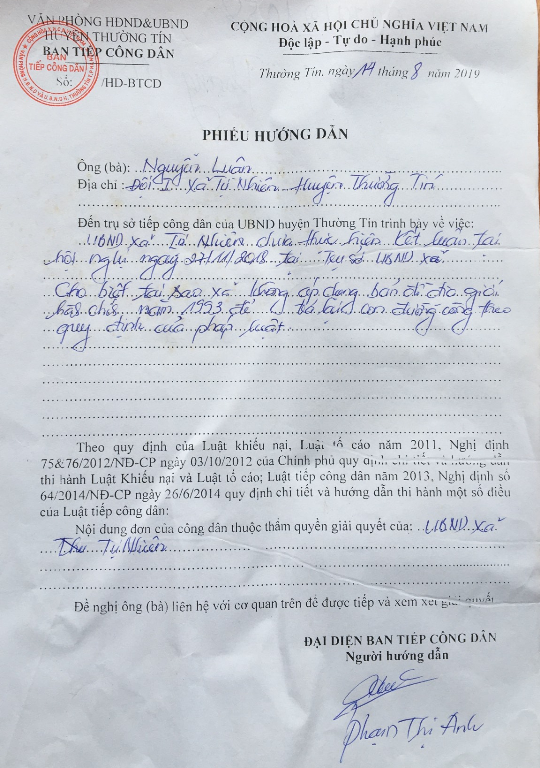 VĂN PHÒNG HĐND&UBND
HUYỆN THƯỜNG TÍN
BAN TIẾP CÔNG DÂN
Số: /HD-BTCD
BAN
TIẾP CÔNG DÂN
CỘNG HOÀ XÃ HỘI CHỦ NGHĨA VIỆT NAM
Độc lập - Tự do - Hạnh phúc
Thường Tín, ngày 14 tháng 8 năm 2019
PHIẾU HƯỚNG DẪN
Ông (bà): Nguyễn Luân
Địa chỉ : Đội I xã Tự Nhiên Huyện Thường Tín
Đến trụ sở tiếp công dân của UBND huyện Thường Tín trình bày về việc:
UBND xã Tự Nhiên chưa thực hiện kết luận tại
hội nghị ngày 27/11/2018 tại Trụ sở UBND xã
Cho biết tại sao xã không áp dụng bản đồ địa giới
hành chính năm 1993 để trả lại con đường công theo
quy định của pháp luật
Theo quy định của Luật khiếu nại, Luật tố cáo năm 2011, Nghị định
75&76/2012/NĐ-CP ngày 03/10/2012 của Chính phủ quy định chi tiết và hướng dẫn
thi hành Luật Khiếu nại và Luật tố cáo; Luật tiếp công dân năm 2013, Nghị định số
64/2014/NĐ-CP ngày 26/6/2014 quy định chi tiết và hướng dẫn thi hành một số điều
của Luật tiếp công dân:
Nội dung đơn của công dân thuộc thẩm quyền giải quyết của: UBND xã
Tự Nhiên
Đề nghị ông (bà) liên hệ với cơ quan trên để được tiếp và xem xét giải quyết
ĐẠI DIỆN BAN TIẾP CÔNG DÂN
Người hướng dẫn
Phạm Thị Anh